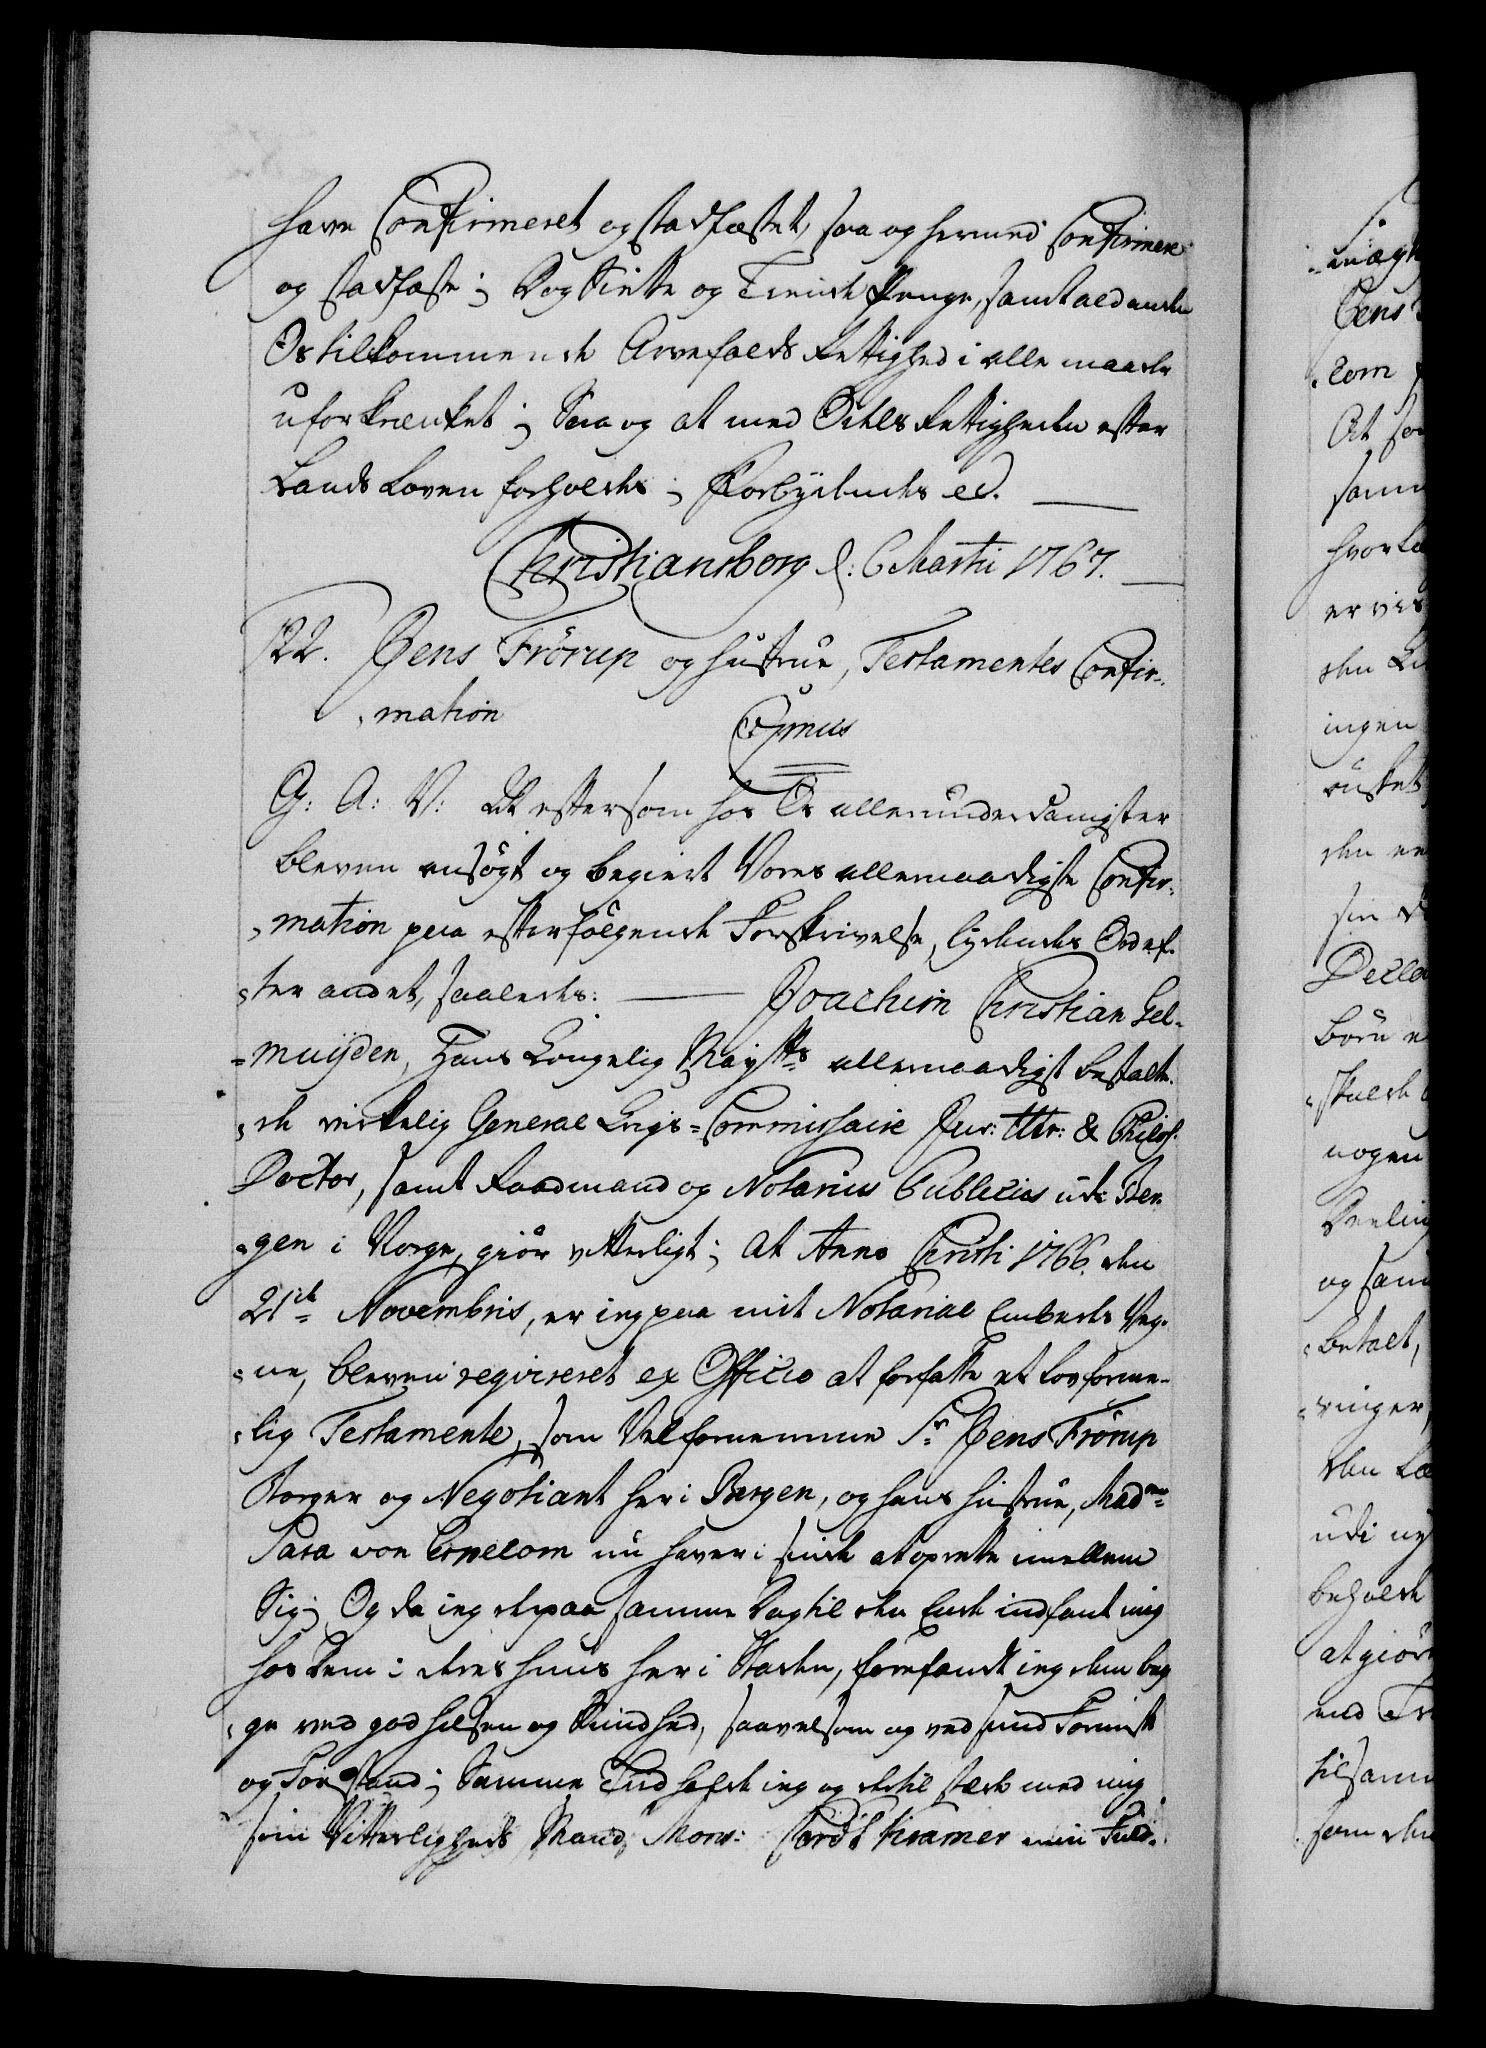 have Confirmeret og stadfæstet, saa og hermed Confirmere
og stadfæste; Dog Siette og Tiende Penge, samt ald anden
Os tilkommende Arvefalds Rettighed i alle maader
uforkrænket; Saa og at med Odels Rettigheden efter
Lands Loven forholdes; Forbydendes etc.
Christiansborg d: 6 Martii 1767.
122. Jens Frörup og Hustrue, Testamentes Confir-
mation
G: A: V: at eftersom hos Os allerunderdanigster
bleven ansögt og begiert Vores allernaadigste Confir-
mation paa efterfölgende Forskrivelse, lydendes Ord ef-
ter andet, saaledes: Joachim Christian Gel-
muyden, Hans Kongelig Maysts allernaadigst bestalte-
de virkelig General Krigs-Commissaire Jur: Utr: & Philos:
Doctor, samt Raadmand og Notarius Publicus udi Ber-
gen i Norge, giör vitterligt; at Anno Christi 1766. den
21de Novembris, er ieg paa mit Notarial Embeds Veg-
ne, bleven reqvireret ex Officio at forfatte et lovforme-
lig Testamente, som Velfornemme Sr Jens Frörup
Borger og Negotiant her i Bergen, og hans Hustrue, Madme
Sara von nu haver i sinde at oprette imellem
Sig; Og da ieg derpaa samme Dag til den Ende indfandt mig
hos Dem i deres Huus her i Staden, forefandt ieg dem beg-
ge ved god Helsen og Sundhed, saavelsom og ved sund Fornuft
og Forstand; Samme Tiid hafde ieg og dertil stede med mig
som Vitterligheds Mand, Mons: Cordt Kramer min Fuld-